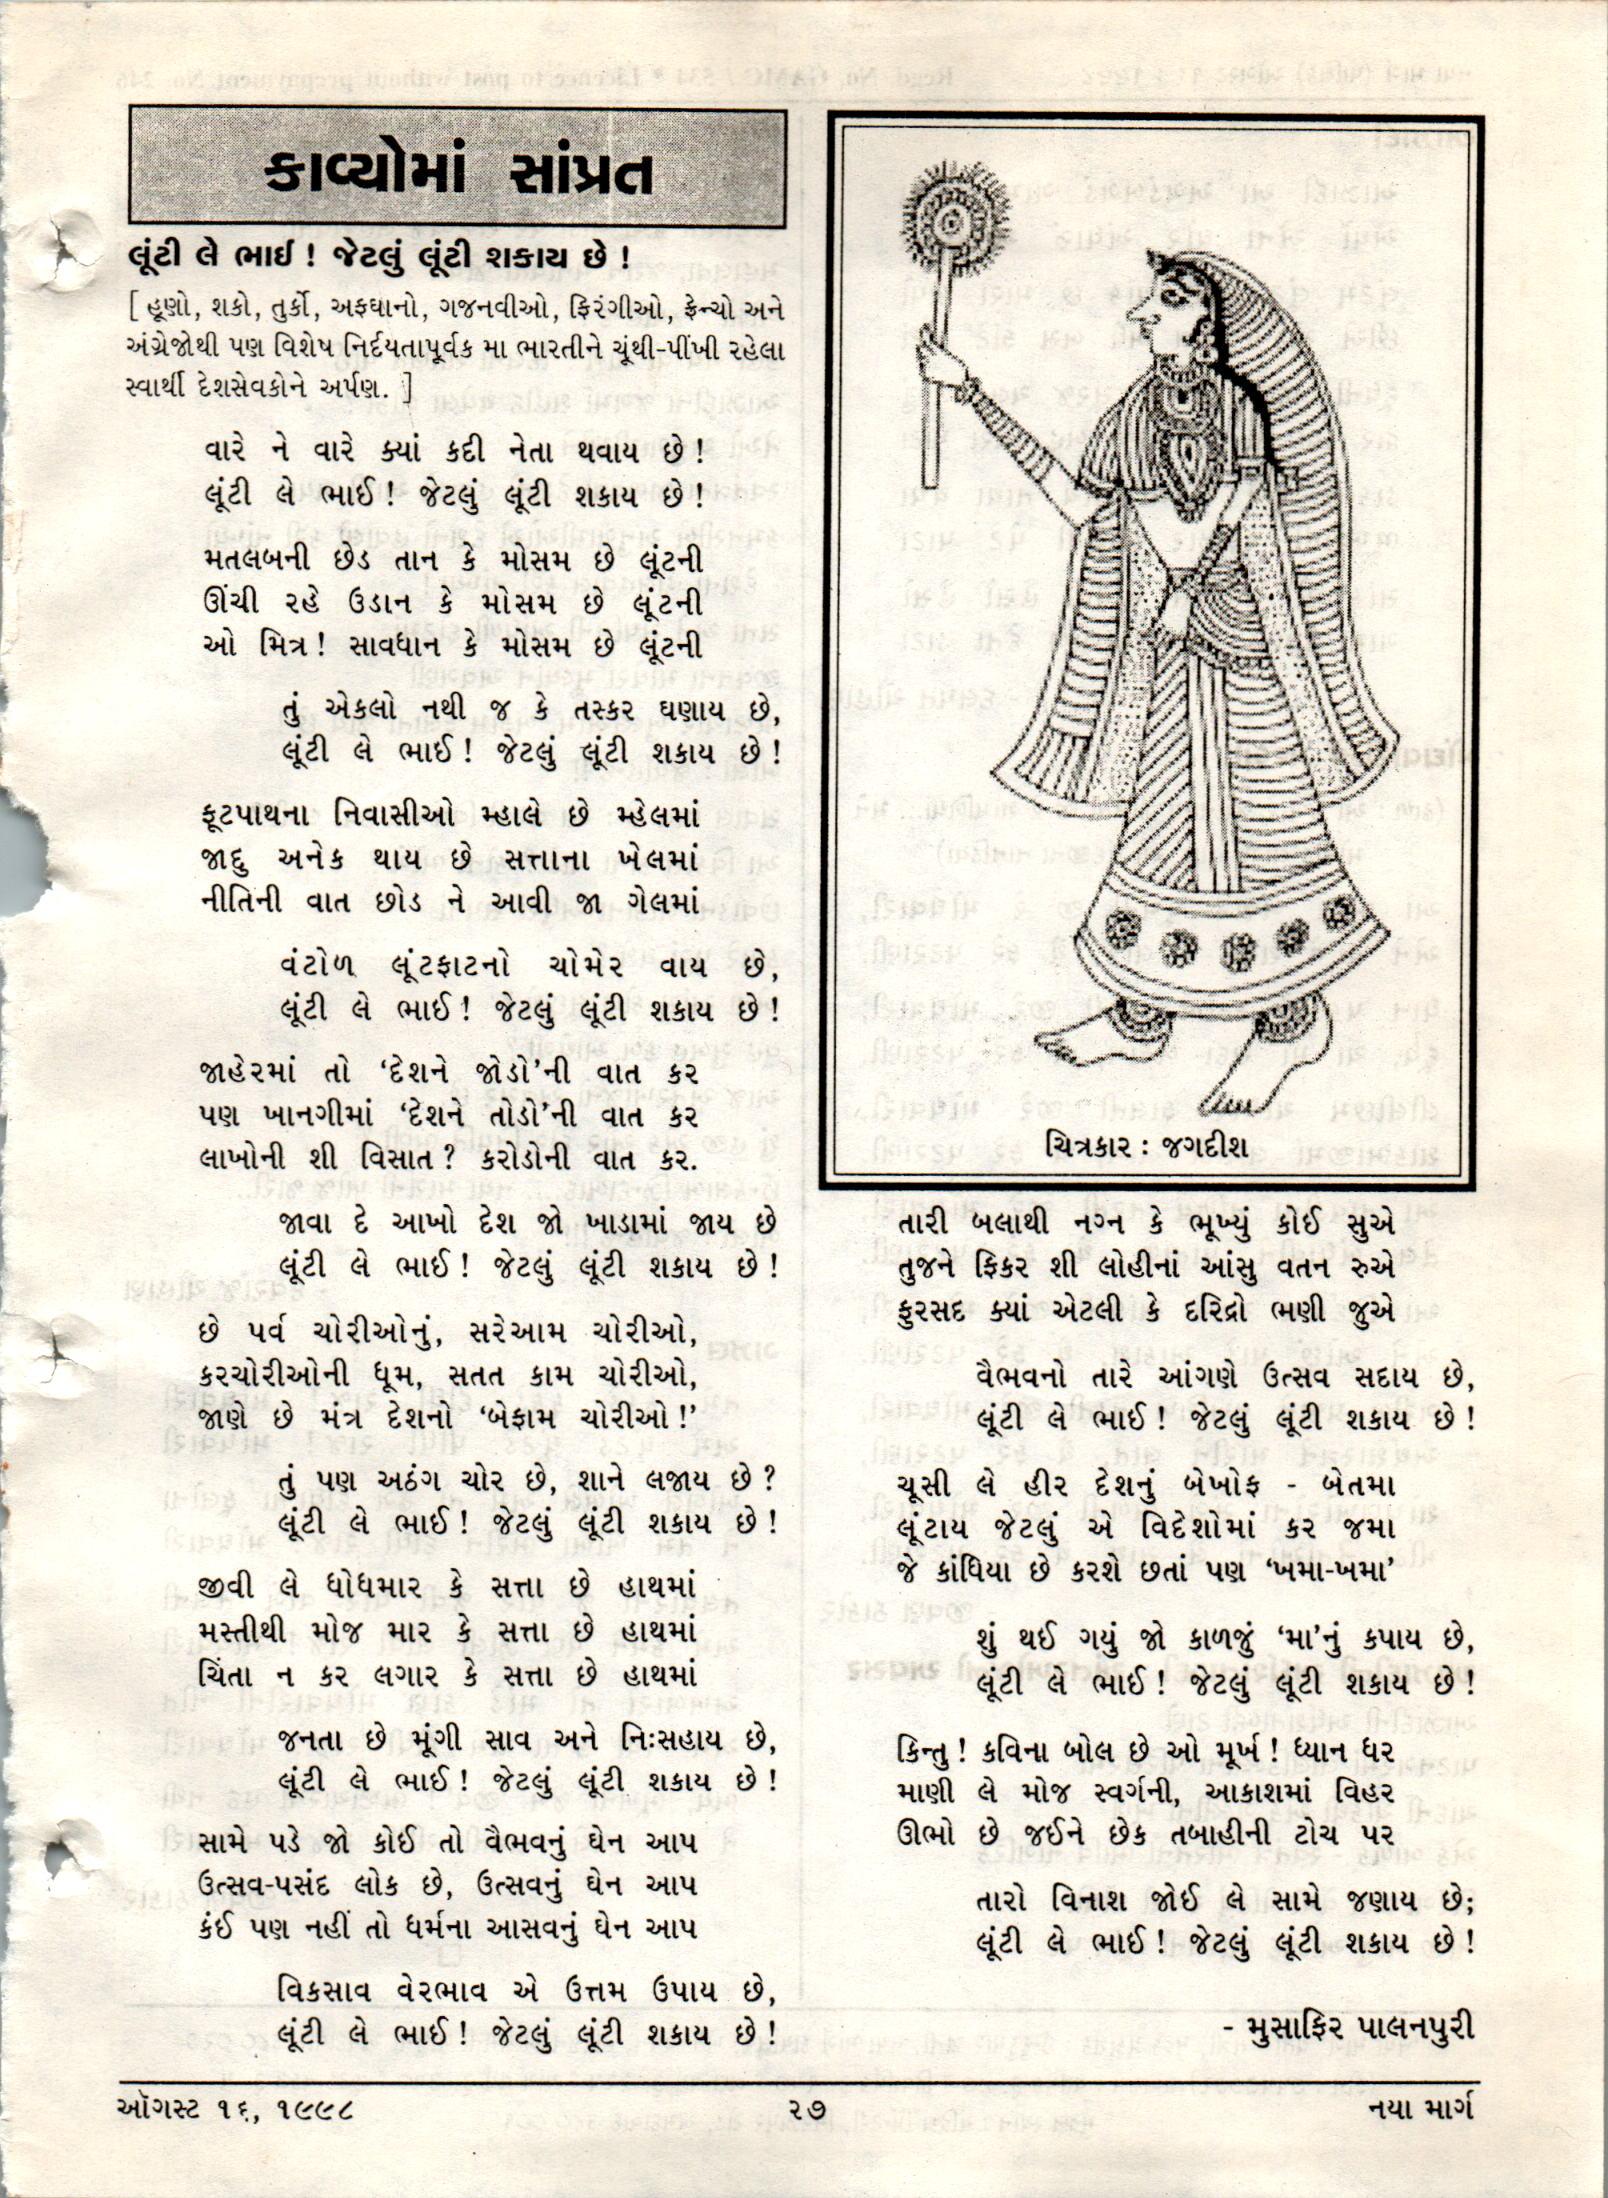 કાવ્યોમાં સાંપ્રત
લૂંટી લે ભાઈ! જેટલું લૂંટી શકાય છે!
[ હૂણો, શકો, તુર્કો, અફઘાનો, ગજનવીઓ, ફિરંગીઓ, ફ્રેન્ચો અને
અંગ્રેજોથી પણ વિશેષ નિર્દયતાપૂર્વક મા ભારતીને ચૂંથી-પીંખી રહેલા
સ્વાર્થી દેશસેવકોને અર્પણ. ]
વારે ને વારે ક્યાં કદી નેતા થવાય છે!
લૂંટી લે ભાઈ! જેટલું લૂંટી શકાય છે!
મતલબની છેડ તાન કે મોસમ છે લૂંટની
ઊંચી રહે ઉડાન કે મોસમ છે લૂંટની
ઓ મિત્ર! સાવધાન કે મોસમ છે લૂંટની
તું એકલો નથી જ કે તસ્કર ઘણાય છે,
લૂંટી લે ભાઈ! જેટલું લૂંટી શકાય છે!
ફૂટપાથના નિવાસીઓ મ્હાલે છે મ્હેલમાં
જાદુ અનેક થાય છે સત્તાના ખેલમાં
નીતિની વાત છોડ ને આવી જા ગેલમાં
વંટોળ લૂંટફાટનો ચોમેર વાય છે,
લૂંટી લે ભાઈ! જેટલું લૂંટી શકાય છે!
જાહેરમાં તો ‘દેશને જોડો’ની વાત કર
પણ ખાનગીમાં ‘દેશને તોડો’ની વાત કર
લાખોની શી વિસાત? કરોડોની વાત કર.
જાવા દે આખો દેશ જો ખાડામાં જાય છે
લૂંટી લે ભાઈ! જેટલું લૂંટી શકાય છે!
છે પર્વ ચોરીઓનું, સરેઆમ ચોરીઓ,
કરચોરીઓની ધૂમ, સતત કામ ચોરીઓ,
જાણે છે મંત્ર દેશનો ‘બેફામ ચોરીઓ!’
તું પણ અઠંગ ચોર છે, શાને લજાય છે?
લૂંટી લે ભાઈ! જેટલું લૂંટી શકાય છે!
જીવી લે ધોધમાર કે સત્તા છે હાથમાં
મસ્તીથી મોજ માર કે સત્તા છે હાથમાં
ચિંતા ન કર લગાર કે સત્તા છે હાથમાં
જનતા છે મૂંગી સાવ અને નિઃસહાય છે,
લૂંટી લે ભાઈ! જેટલું લૂંટી શકાય છે!
સામે પડે જો કોઈ તો વૈભવનું ઘેન આપ
ઉત્સવ-પસંદ લોક છે, ઉત્સવનું ઘેન આપ
કંઈ પણ નહીં તો ધર્મના આસવનું ઘેન આપ
વિકસાવ વેરભાવ એ ઉત્તમ ઉપાય છે,
લૂંટી લે ભાઈ! જેટલું લૂંટી શકાય છે!
ચિત્રકાર : જગદીશ
તારી બલાથી નગ્ન કે ભૂખ્યું કોઈ સુએ
તુજને ફિકર શી લોહીનાં આંસુ વતન રુએ
ફુરસદ ક્યાં એટલી કે દરિદ્રો ભણી જુએ
વૈભવનો તારે આંગણે ઉત્સવ સદાય છે,
લૂંટી લે ભાઈ! જેટલું લૂંટી શકાય છે!
ચૂસી લે હીર દેશનું બેખોફ - બેતમા
લૂંટાય જેટલું એ વિદેશોમાં કર જમા
જે કાંધિયા છે કરશે છતાં પણ ‘ખમા-ખમા’
શું થઈ ગયું જો કાળજું ‘મા’નું કપાય છે,
લૂંટી લે ભાઈ! જેટલું લૂંટી શકાય છે!
કિન્તુ! કવિના બોલ છે ઓ મૂર્ખ! ધ્યાન ધર
માણી લે મોજ સ્વર્ગની, આકાશમાં વિહર
ઊભો છે જઈને છેક તબાહીની ટોચ પર
તારો વિનાશ જોઈ લે સામે જણાય છે;
લૂંટી લે ભાઈ! જેટલું લૂંટી શકાય છે!
- મુસાફિર પાલનપુરી
ઑગસ્ટ ૧૬, ૧૯૯૮
૨૭
નયા માર્ગ